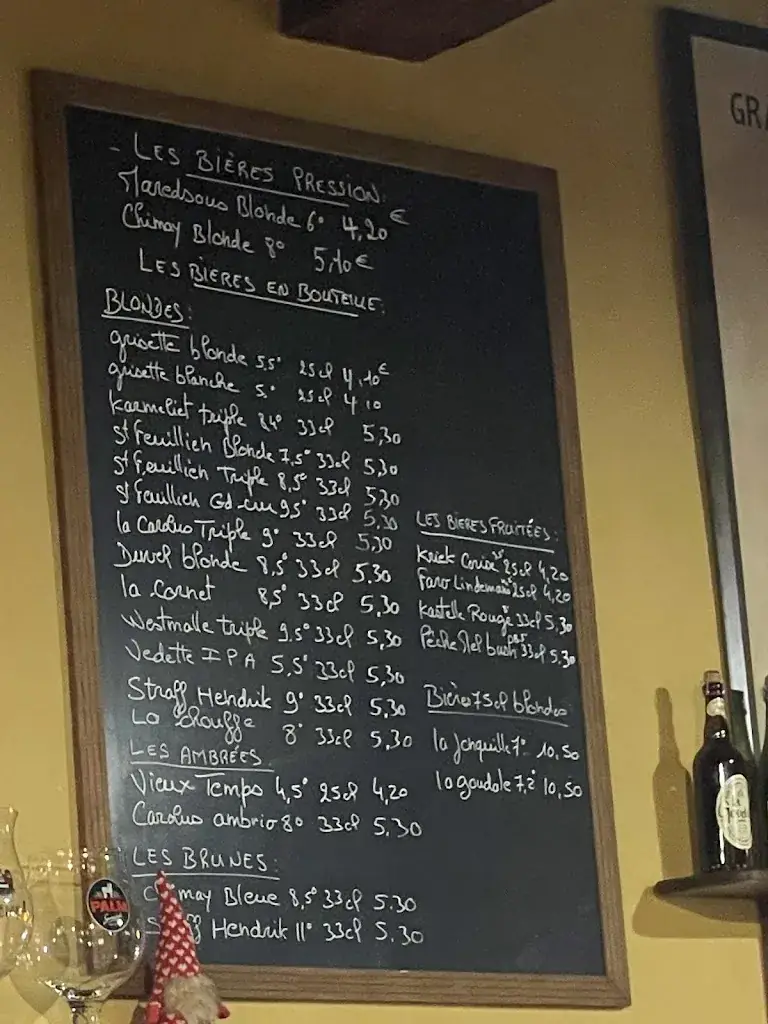 - LES BIÈRES PRESSION:
Maredsous Blonde 6° 4,20 €
Chimay Blonde 8° 5,10 €
LES BIERES EN BOUTEILLE:
BLONDES:
grisette blonde 5,5° 25cl 4,10 €
grisette blanche 5° 25cl 4,10
Karmeliet triple 8,4° 33cl 5,30
St Feuillien Blonde 7,5° 33cl 5,30
St Feuillien Triple 8,5° 33cl 5,30
St Feuillien Gd-cru 9,5° 33cl 5,30
la Carolus Triple 9° 33cl 5,30
Duvel blonde 8,5° 33cl 5,30
la Cornet 8,5° 33cl 5,30
Westmalle triple 9,5° 33cl 5,30
Vedette IPA 5,5° 33cl 5,30
Straff Hendrik 9° 33cl 5,30
La Chouffe 8° 33cl 5,30
LES AMBRÉES
Vieux Temps 4,5° 25cl 4,20
Carolus ambrio 8° 33cl 5,30
LES BRUNES:
Chimay Bleue 8,5° 33cl 5.30
Straff Hendrik 11° 33cl 5.30
LES BIERES FRUITÉES:
Kriek 25cl 4,20
Faro Lindemans 25cl 4,20
Kastelle Rouge 33cl 5,30
Pêche Mel bush 33cl 5,30
Bières 75cl blondes
la Jonquille 7° 10,50
la goudale 7,2° 10,50
GRA
PALM